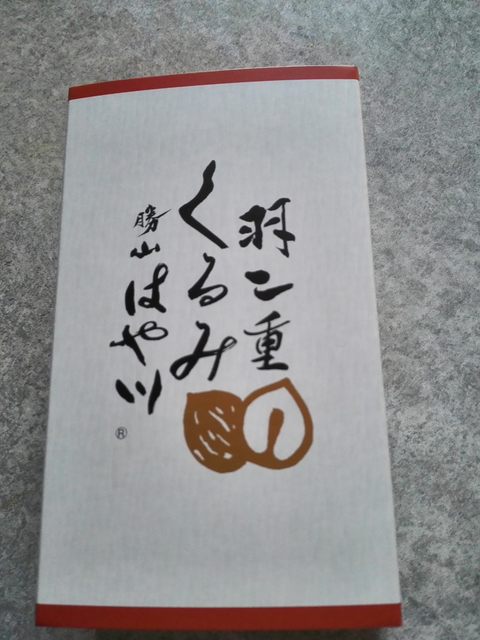 羽二重
くるみ
勝山はや川
®